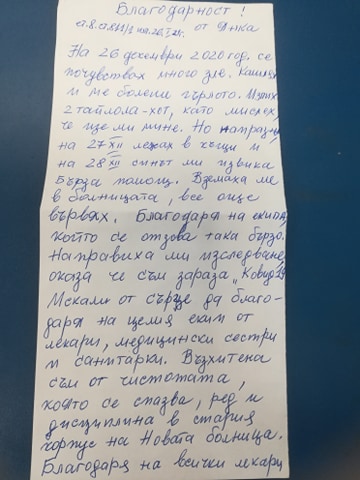 Благодарност!
от Янка
На 26 декември 2020 год. се
почувствах много зле. Кашлях
и ме болеше гърлото. Изпих
2 тайлола-хот, като мислех,
че ще ми мине. Но напразно
на 27 XII лежах в къщи и
на 28 XII синът ми извика
Бърза помощ. Вземаха ме
в болницата, все още
вървях. Благодаря на екипа,
който се отзова така бързо.
Направиха ми изследване,
оказа че съм зараза „Ковид 19
Искам от сърце да благо-
даря на целия екип от
лекари, медицински сестри
и санитарки. Възхитена
съм от чистотата,
която се спазва, ред и
дисциплина в стария
корпус на Новата болница.
Благодаря на всички лекари